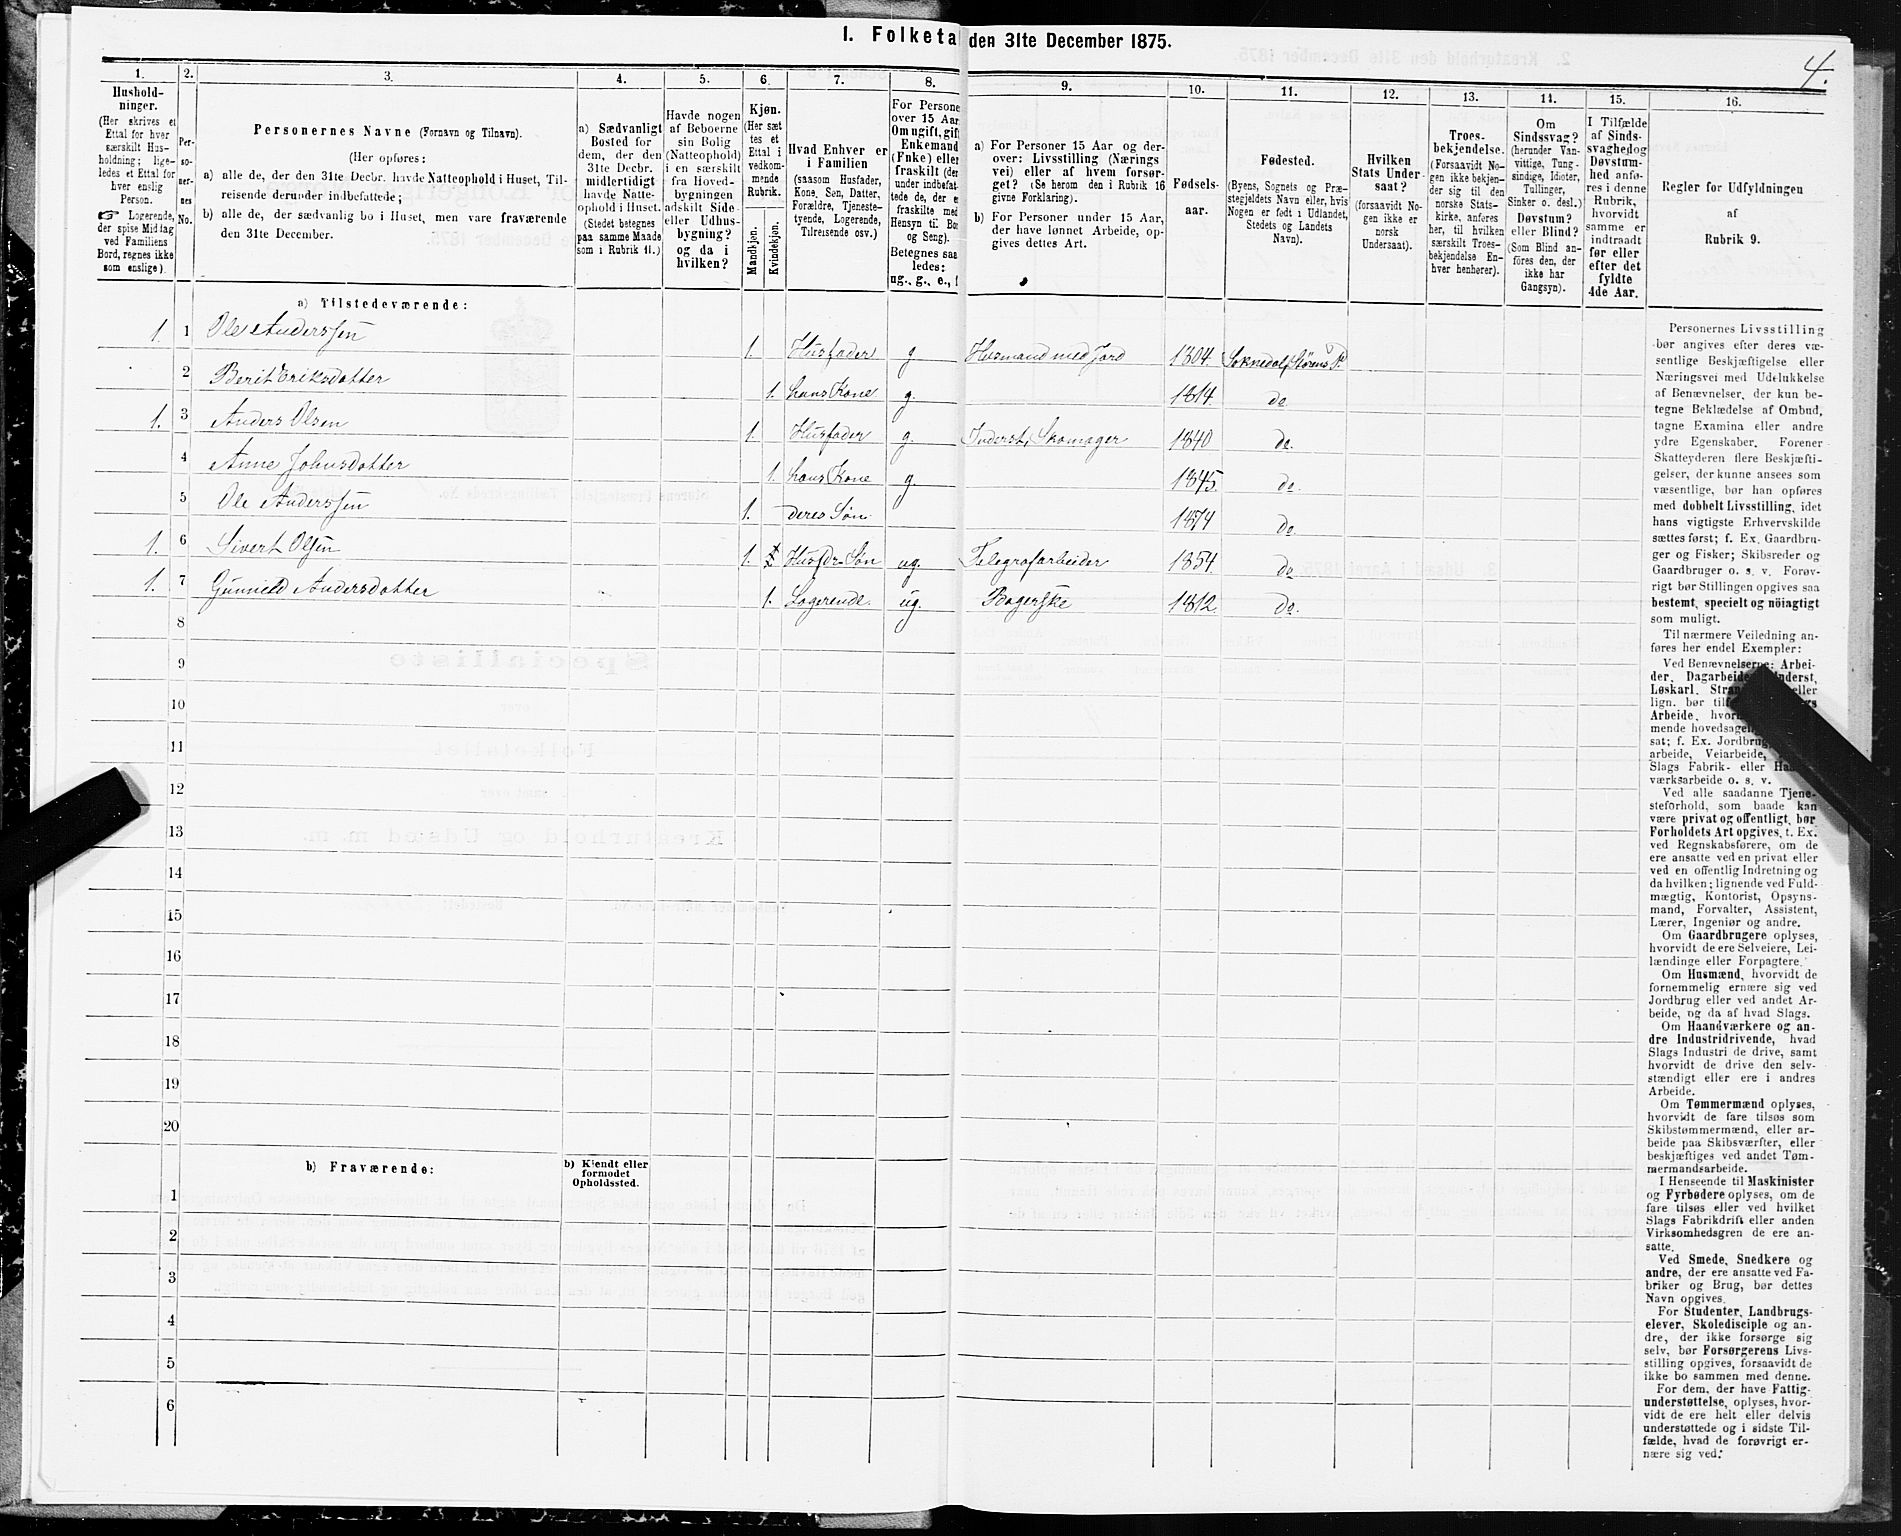 I. Folketa den 31te December 1875.
4.
1.
Hushold-
ninger.
(Her skrives et
Ettal for hver
særskilt Hus-
holdning; lige-
ledes et Ettal for
hver enslig
Person.
☞ Logerende,
der spise Middag
ved Familiens
Bord, regnes ikke
som enslige).
2.
Per-
so-
ner-
nes
No.
3.
Personernes Navne (Fornavn og Tilnavn).
(Her opføres:
a) alle de, der den 31te Decbr. havde Natteophold i Huset, Til-
reisende derunder indbefattede;
b) alle de, der sædvanlig bo i Huset, men vare fraværende
den 31te December.
4.
a) Sædvanligt
Bosted for
dem, der den
31te Decbr.
midlertidigt
havde Natte-
ophold i Huset.
(Stedet betegnes
paa samme Maade
som i Rubrik 11.)
5.
Havde nogen
af Beboerne
sin Bolig
(Natteophold)
i en særskilt
fra Hoved-
bygningen
adskilt Side-
eller Udhus-
bygning?
og da i
hvilken?
6.
Kjøn.
(Her sæt
tes et
Ettal i
vedkom-
mende
Rubrik.
Mandkjøn.
Kvindekjøn.
7.
Hvad Enhver er
i Familien
(saasom Husfader,
Kone, Søn, Datter,
Forældre, Tjeneste-
tyende, Logerende,
Tilreisende osv.)
8.
For Persone
over 15 Aar
Om ugift, gift
Enkemand
(Enke) elle
fraskilt (der
under indbefat-
tede de, der e
fraskilte med
Hensyn til Bo
og Seng).
Betegnes saa
ledes:
ug., g., e., f
9.
a) For Personer 15 Aar og der-
over: Livsstilling (Nærings
vei) eller af hvem forsør-
get? (Se herom den i Rubrik 16
givne Forklaring).
b) For Personer under 15 Aar,
der have lønnet Arbeide, op-
gives dettes Art.
10.
Fødsels-
aar.
11.
Fødested.
(Byens, Sognets og Præ-
stegjeldets Navn eller, hvis
Nogen er født i Udlandet,
Stedets og Landets
Navn).
12.
Hvilken
Stats Under-
saat?
(forsaavidt No-
gen ikke er
norsk
Undersaat).
13.
Troes-
bekjendelse.
(Forsaavidt No-
gen ikke bekjen-
der sig til den
norske Stats-
kirke, anføres
her, til hvilken
særskilt Troes-
bekjendelse En-
hver henhører).
14.
Om
Sindssvag?
(herunder Van-
vittige, Tung-
sindige, Idioter,
Tullinger,
Sinker o. desl.)
Døvstum?
eller Blind?
(Som Blind an-
føres den, der
ikke har
Gangsyn).
15.
I Tilfælde
af Sinds-
svaghed og
Døvstum-
hed anfø-
res i denne
Rubrik,
hvorvidt
samme er
indtraadt
før eller
efter det
fyldte
4de Aar.
16.
Regler for Udfyldningen
af
Rubrik 9.
a) Tilstedeværende:
1. 1 Ole Anderssen 1. Husfader g Husmand med Jord 1804. Soknedal, Størens P.
2 Berit Eriksdatter 1. hans Kone g. 1814. do
1. 3 Anders Olsen 1. Husfader g. Inderst, Skomager 1840 do.
4 Anne Johnsdatter 1. hans Kone g. 1845. do.
5 Ole Anderssen 1. deres Søn 1874 do
1. 6 Sivert Olsen 1. Husfdr. Søn ug. Telegrafarbeider 1854. do
1. 7 Gunnild Andersdatter 1. Logerende. ug. Bagerske 1812. do.
8
9
10
11
12
13
14
15
16
17
18
19
20
b) Fraværende:
b) Kjendt eller
formodet
Opholdssted.
1
2
3
4
5
6
Personernes Livsstilling
bør angives efter deres væ-
sentlige Beskjæftigelse eller
Næringsvei med Udelukkelse
af Benævnelser, der kun be-
tegne Beklædelse af Ombud,
tagne Examina eller andre
ydre Egenskaber. Forener
Skatteyderen flere Beskjæfti-
gelser, der kunne ansees som
væsentlige, bør han opføres
med dobbelt Livsstilling, idet
hans vigtigste Erhvervskilde
sættes først; f. Ex. Gaardbru-
ger og Fisker; Skibsreder og
Gaardbruger o. s. v. Forøv-
rigt bør Stillingen opgives saa
bestemt, specielt og nöiagtigt
som muligt.
Til nærmere Veiledning an-
føres her endel Exempler:
Ved Benævnelserne: Arbei-
der, Dagarbeide Inderst,
Løskarl, Stran eller
lign. bør tilf
Arbeide, hvor
mende hovedsagel
sat; f. Ex. Jordbrug
arbeide, Veiarbeide,
Slags Fabrik- eller Ha
værksarbeide o. s. v.
Ved alle saadanne Tjene-
steforhold, som baade kan
være privat og offentligt, bør
Forholdets Art opgives, t. Ex.
ved Regnskabsførere, om de
ere ansatte ved en privat eller
ved en offentlig Indretning og
da hvilken; lignende ved Fuld-
mægtig, Kontorist, Opsyns-
mand, Forvalter, Assistent,
Lærer, Ingeniør og andre.
Om Gaardbrugere oplyses,
hvorvidt de ere Selveiere, Lei-
lændinge eller Forpagtere.
Om Husmænd, hvorvidt de
fornemmelig ernære sig ved
Jordbrug eller ved andet Ar-
beide, og da af hvad Slags.
Om Haandværkere og an-
dre Industridrivende, hvad
Slags Industri de drive, samt
hvorvidt de drive den selv-
stændigt eller ere i andres
Arbeide.
Om Tømmermænd oplyses,
hvorvidt de fare tilsøs som
Skibstømmermænd, eller ar-
beide paa Skibsværfter, eller
beskjæftiges ved andet Tøm-
mermandsarbeide.
I Henseende til Maskinister
og Fyrbødere oplyses, om de
fare tilsøs eller ved hvilket
Slags Fabrikdrift eller anden
Virksomhedsgren de ere an-
satte.
Ved Smede, Snedkere og
andre, der ere ansatte ved Fa-
briker og Brug, bør dettes
Navn opgives.
For Studenter, Landbrugs-
elever, Skoledisciple og an-
dre, der ikke forsørge sig
selv, bør Forsørgerens Livs-
stilling opgives, forsaavidt de
ikke bo sammen med denne.
For dem, der have Fattig-
understøttelse, oplyses, hvor-
vidt de ere helt eller delvis
understøttede og i sidste Til-
fælde, hvad de forøvrigt er-
nære sig ved.